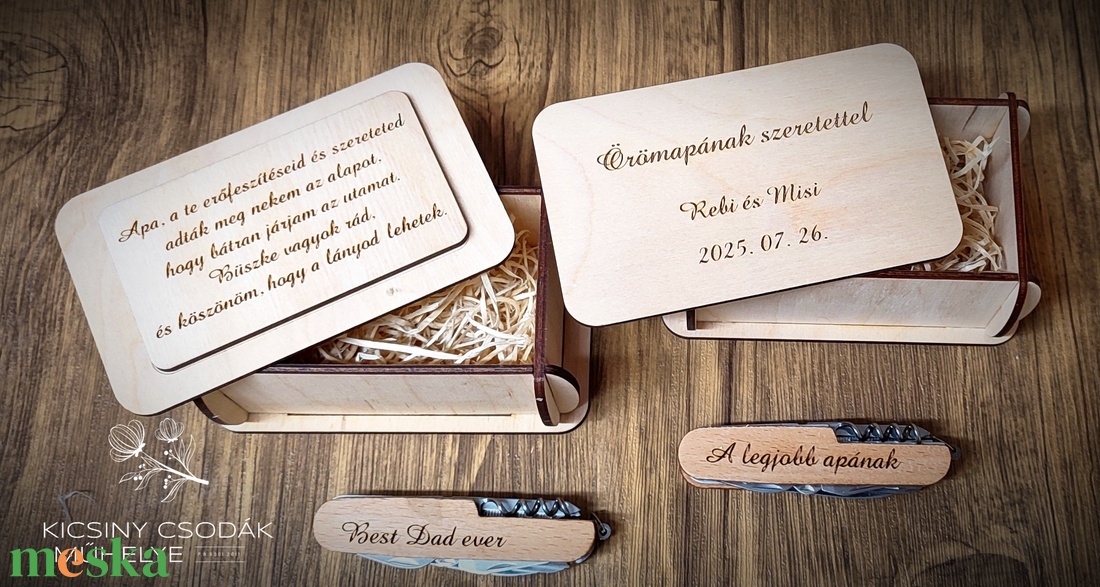 Apa, a te erőfeszítéseid és szereteted
adták meg nekem az alapot,
hogy bátran járjam az utamat.
Büszke vagyok rád,
és köszönöm, hogy a lányod lehetek.
Örömapának szeretettel
Rebi és Misi
2025. 07. 26.
A legjobb apának
Best Dad ever
KICSINY CSODÁK
MŰHELYE
meska